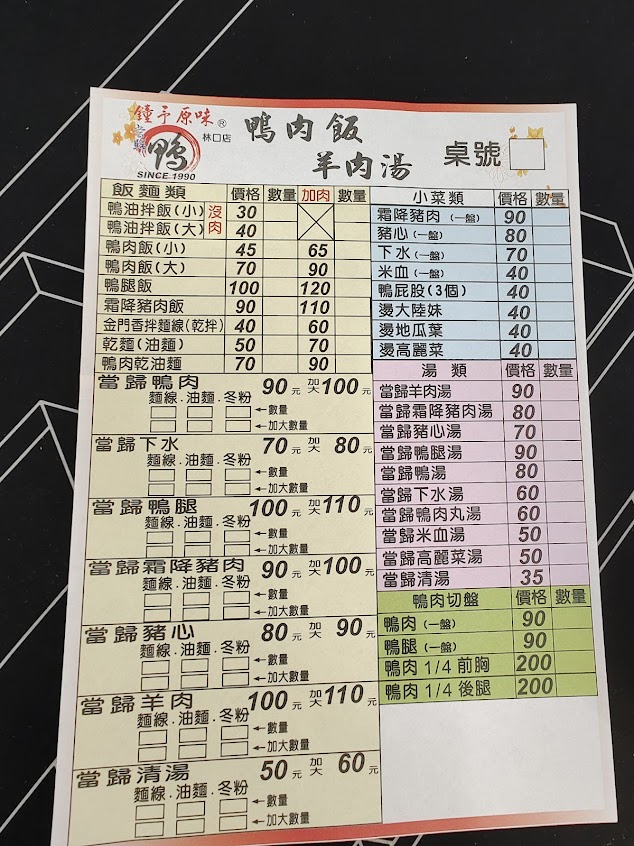 鐘予原味®
高縣
鴨
林口店
SINCE 1990
鴨肉飯
羊肉湯
桌號
飯麵類 價格 數量 加肉 數量
鴨油拌飯(小) 沒肉 30
鴨油拌飯(大) 40
鴨肉飯(小) 45 65
鴨肉飯(大) 70 90
鴨腿飯 100 120
霜降豬肉飯 90 110
金門香拌麵線(乾拌) 40 60
乾麵(油麵) 50 70
鴨肉乾油麵 70 90
當歸鴨肉 90元 加大100元
麵線.油麵.冬粉
←數量
←加大數量
當歸下水 70元 加大 80元
麵線.油麵.冬粉
←數量
←加大數量
當歸鴨腿 100元 加大110元
麵線.油麵.冬粉
←數量
←加大數量
當歸霜降豬肉 90元 加大100元
麵線.油麵.冬粉
←數量
←加大數量
當歸豬心 80元 加大 90元
麵線.油麵.冬粉
←數量
←加大數量
當歸羊肉 100元 加大110元
麵線.油麵.冬粉
←數量
←加大數量
當歸清湯 50元 加大 60元
麵線.油麵.冬粉
←數量
←加大數量
小菜類 價格 數量
霜降豬肉(一盤) 90
豬心(一盤) 80
下水(一盤) 70
米血(一盤) 40
鴨屁股(3個) 40
燙大陸妹 40
燙地瓜葉 40
燙高麗菜 40
湯類 價格 數量
當歸羊肉湯 90
當歸霜降豬肉湯 80
當歸豬心湯 70
當歸鴨腿湯 90
當歸鴨湯 80
當歸下水湯 60
當歸鴨肉丸湯 60
當歸米血湯 50
當歸高麗菜湯 50
當歸清湯 35
鴨肉切盤 價格 數量
鴨肉(一盤) 90
鴨腿(一盤) 90
鴨肉 1/4 前胸 200
鴨肉 1/4 後腿 200